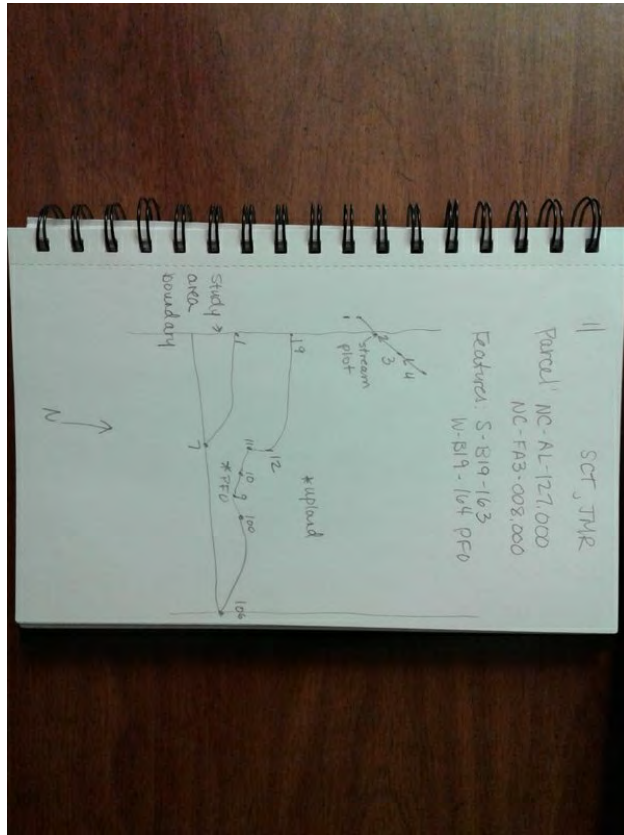 11 SCT, JMR
Parcel: NC-AL-127.000
NC-FA3-008.000
Features: S-B19-163
W-B19-164 PFO
4
3
2
stream
plot
1
*upland
19
12
11
10
9
100
106
1
*PFO
study
area
boundary
7
N